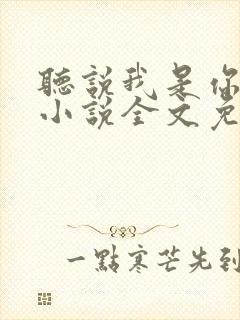 聽說我是你
小說全文免
一點寒芒先到